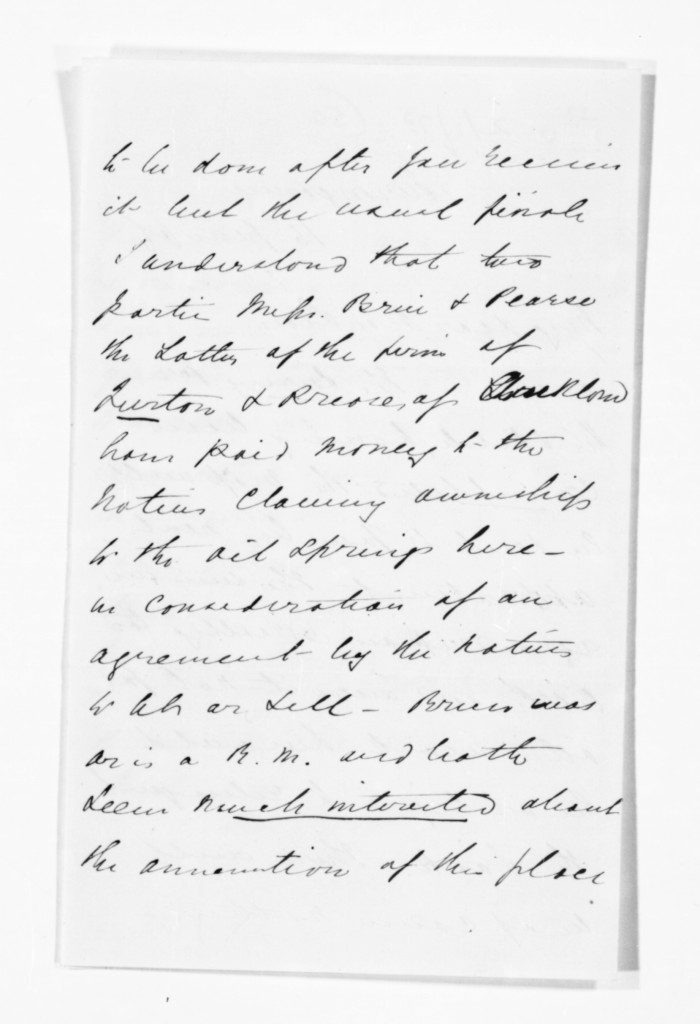 to be done after you receive
it but the usual finale
I understood that two
partie Messrs. Brice & Pearse
the Latter of the firm of
& of Auckland
have paid money to the
Natives claiming ownership
to the oil springs here -
in consideration of an
agreement by the Natives
to let or sell - was
or is a R. M. and both
seem much interested about
the annexation of this place